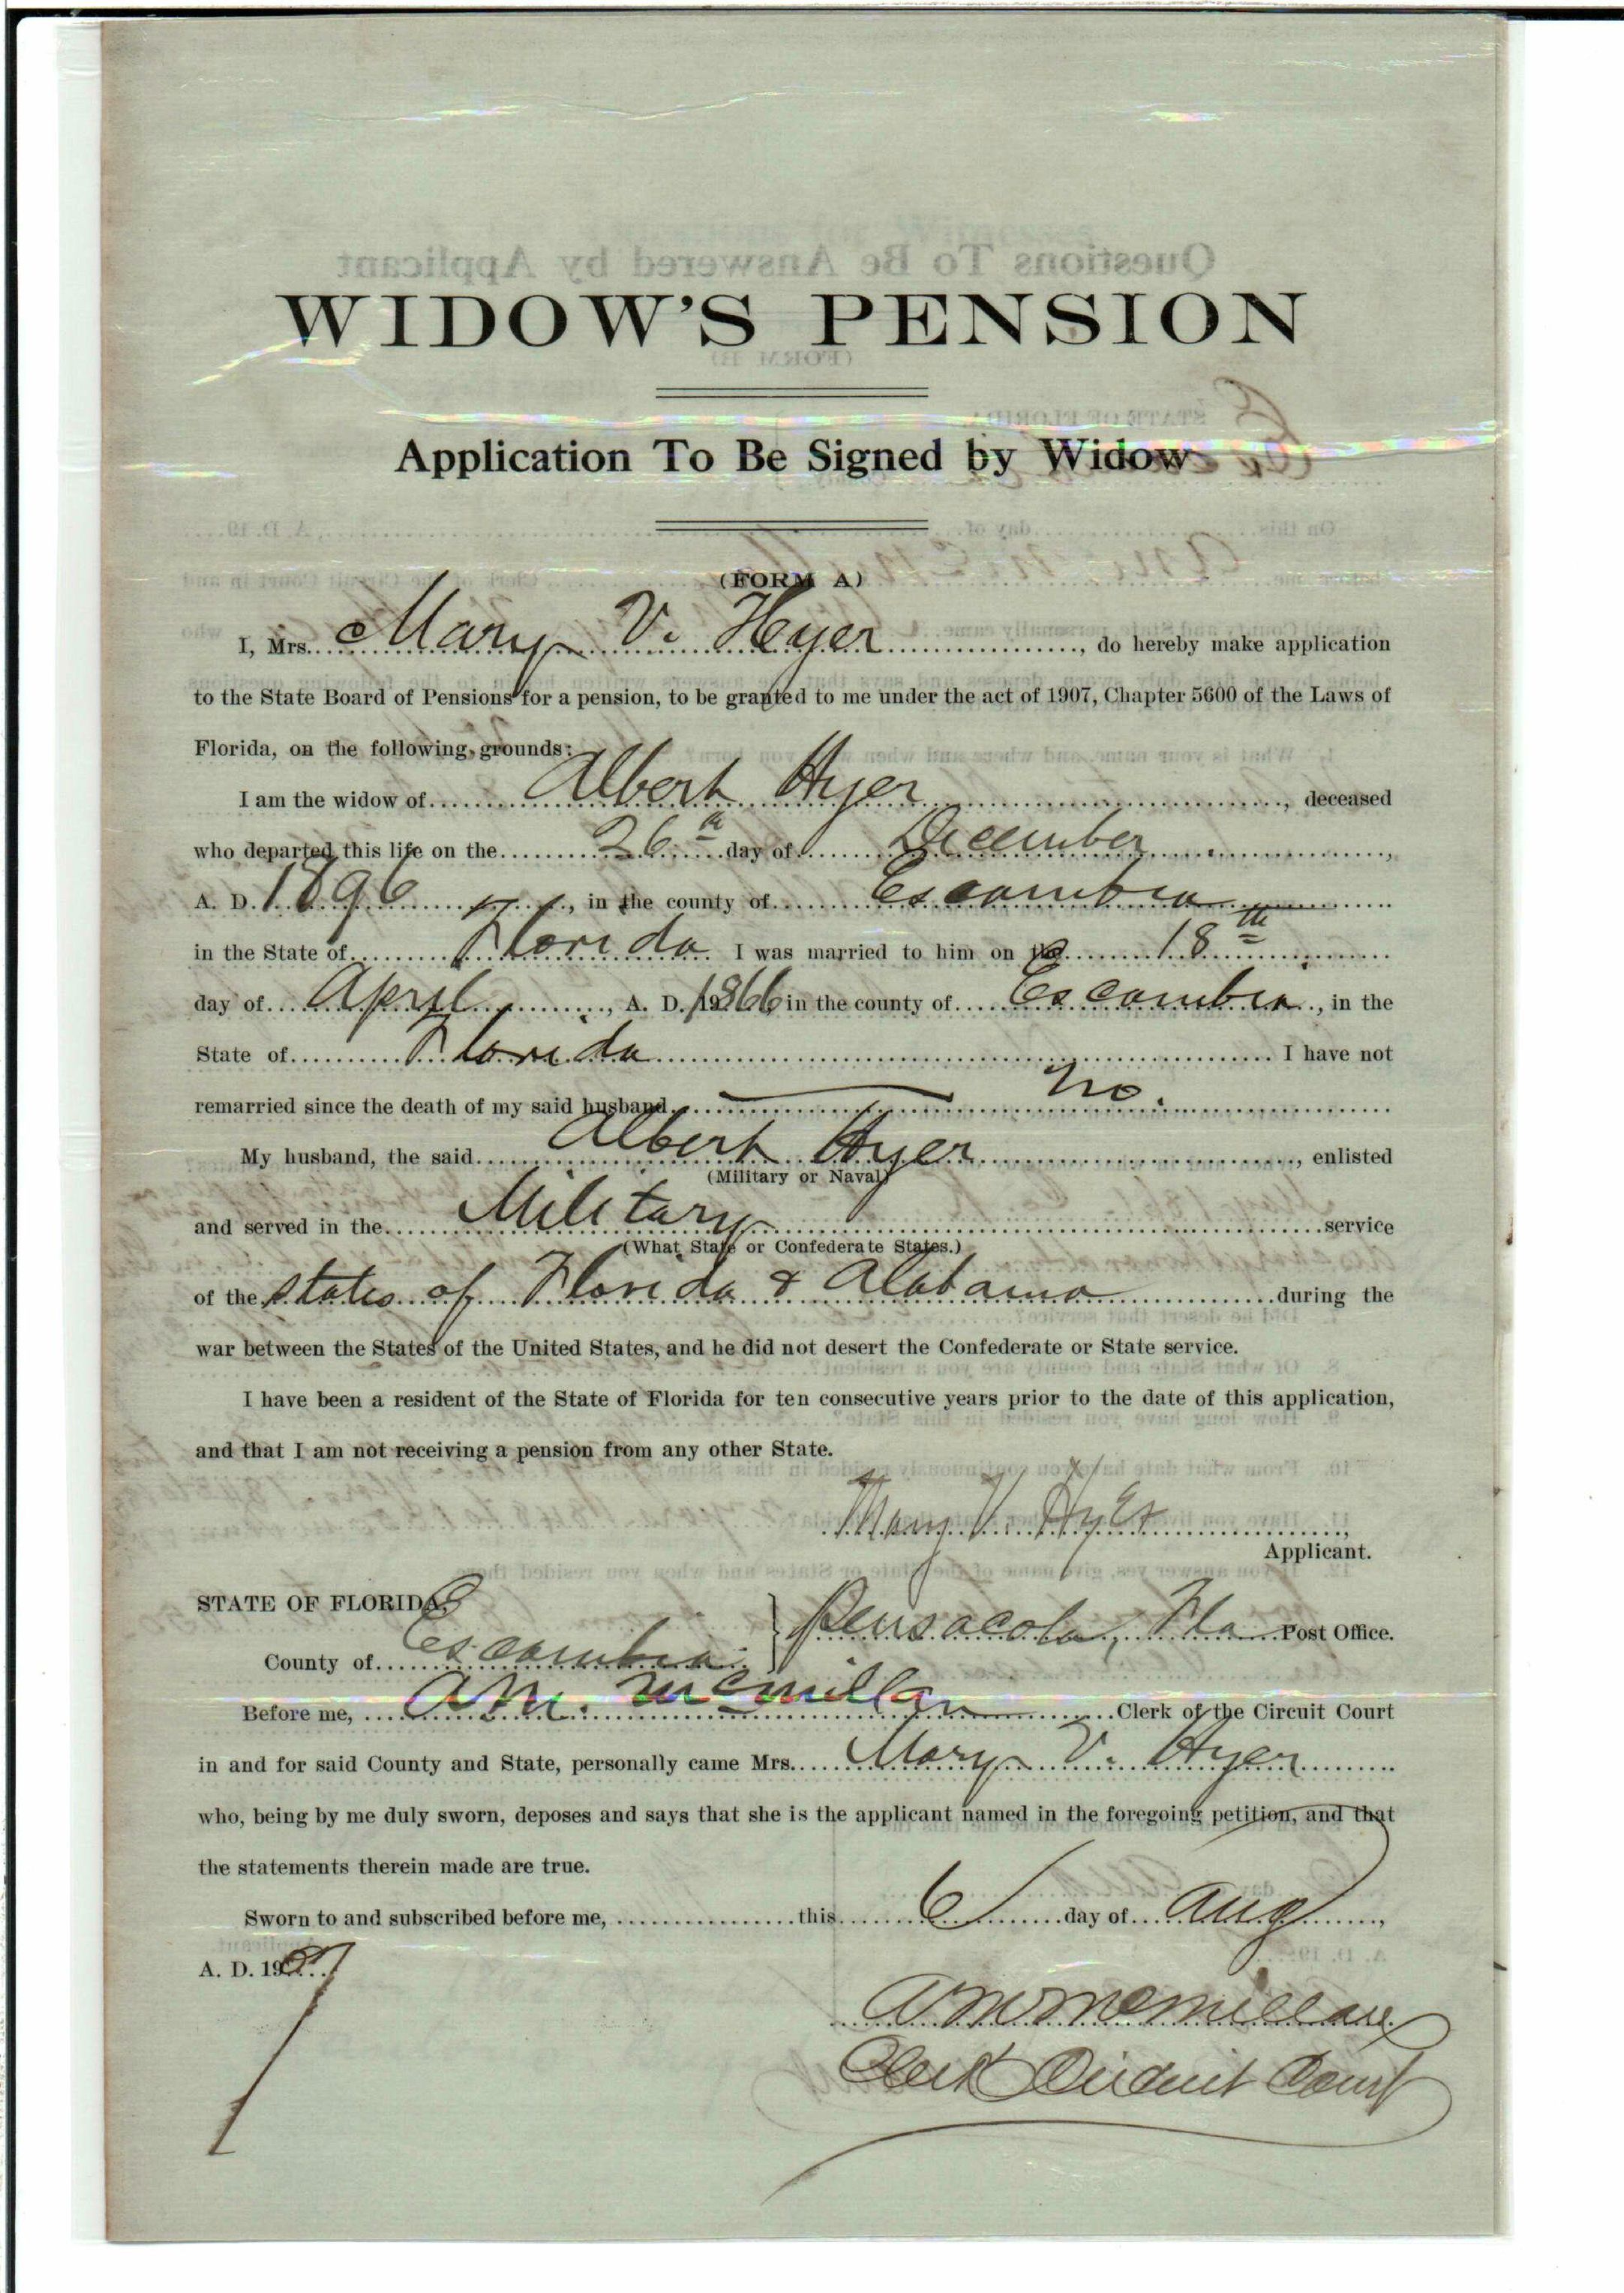 WIDOW'S PENSION
Application To Be Signed by Widow
(FORM A)
I, Mrs. Mary V. Hyer, do hereby make application
to the State Board of Pensions for a pension, to be granted to me under the act of 1907, Chapter 5600 of the Laws of
Florida, on the following grounds:
I am the widow of Albert Hyer, deceased
who departed this life on the 26th day of December,
A. D. 1896, in the county of Escambia
in the State of Florida. I was married to him on the 18th
day of April, A. D. 1866 in the county of Escambia, in the
State of Florida I have not
remarried since the death of my said husband. No.
My husband, the said Albert Hyer, enlisted
(Military or Naval)
and served in the Military service
(What State or Confederate States.)
of the states of Florida & Alabama during the
war between the States of the United States, and he did not desert the Confederate or State service.
I have been a resident of the State of Florida for ten consecutive years prior to the date of this application,
and that I am not receiving a pension from any other State.
Mary V. Hyer,
Applicant.
STATE OF FLORIDA,
Pensacola, Fla Post Office.
County of Escambia
Before me, A. M. McMillan Clerk of the Circuit Court
in and for said County and State, personally came Mrs. Mary V. Hyer
who, being by me duly sworn, deposes and says that she is the applicant named in the foregoing petition, and that
the statements therein made are true.
Sworn to and subscribed before me, this 6 day of Aug,
A. D. 1907
A M McMillan
Clerk Circuit Court